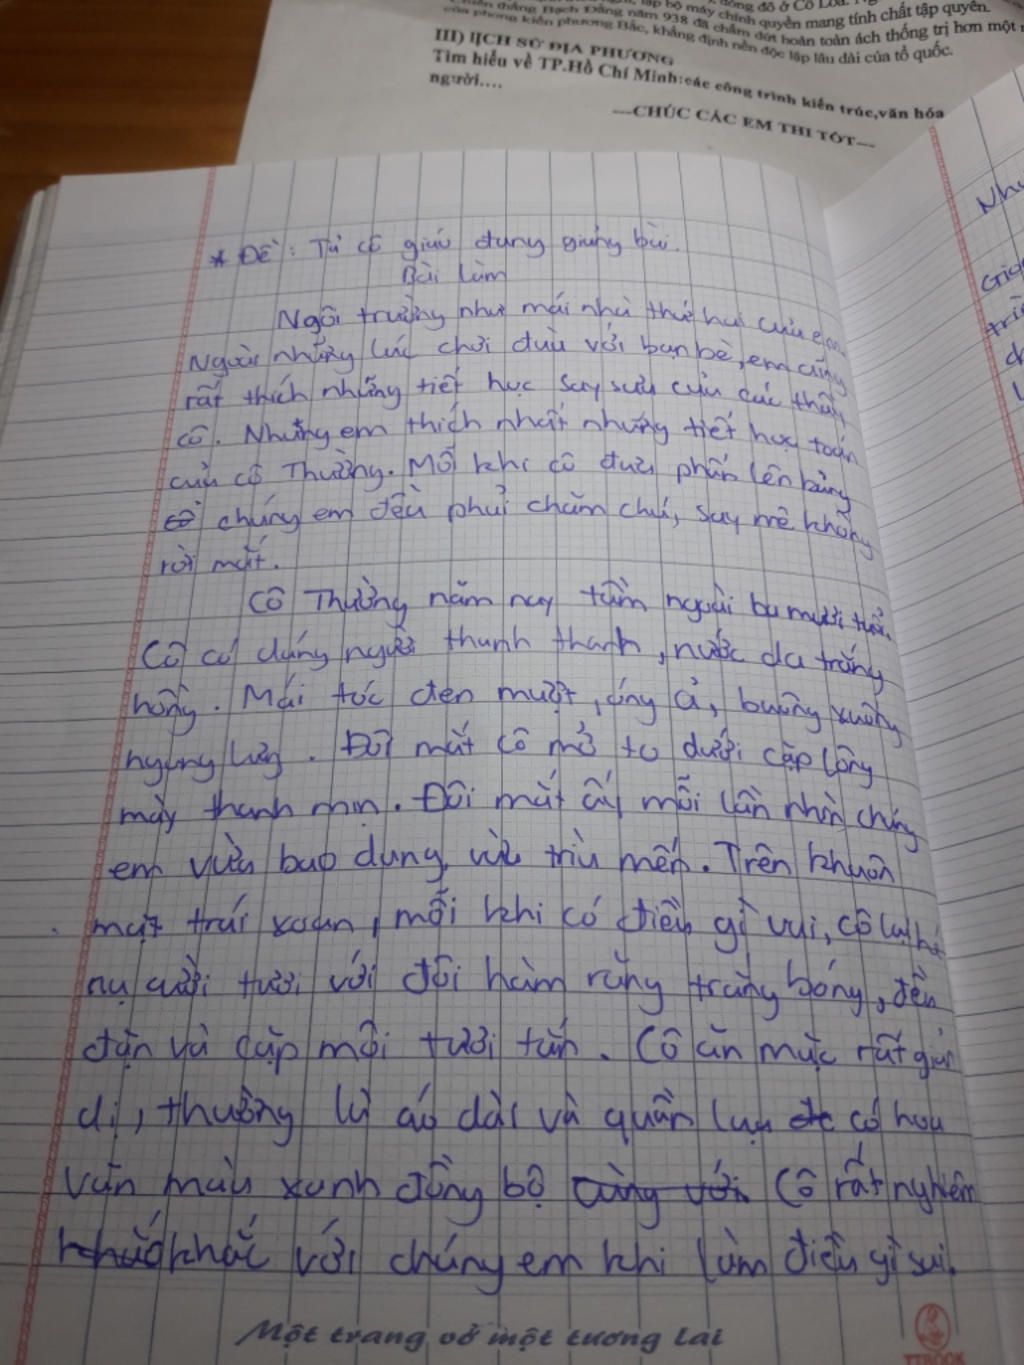 đóng đô ở Cổ Loa.
lập bộ máy chính quyền mang tính chất tập quyền.
thắng Bạch Đằng năm 938 đã chấm dứt hoàn toàn ách thống trị hơn một
của phong kiến phương Bắc, khẳng định nền độc lập lâu dài của tổ quốc.
III) LỊCH SỬ ĐỊA PHƯƠNG
Tìm hiểu về TP.Hồ Chí Minh:các công trình kiến trúc,văn hóa
người....
---CHÚC CÁC EM THI TỐT---
* Đề: Tả cô giáo đang giảng bài.
Bài làm
Ngôi trường như mái nhà thứ hai của em.
Ngoài những lúc chơi đùa với bạn bè, em cũng
rất thích những tiết học say sưa của các thầy
cô. Nhưng em thích nhất những tiết học toán
của cô Thường. Mỗi khi cô đưa phấn lên bảng
chúng em đều phải chăm chú, say mê không
rời mắt.
Cô Thường năm nay tầm ngoài ba mươi tuổi.
Cô có dáng người thanh thanh, nước da trắng
hồng. Mái tóc đen mượt, óng ả, buông xuống
ngang lưng. Đôi mắt cô mở to dưới cặp lông
mày thanh mịn. Đôi mắt ấy mỗi lần nhìn chúng
em vừa bao dung, vừa trìu mến. Trên khuôn
mặt trái xoan, mỗi khi có điều gì vui, cô lại hé
nụ cười tươi với đôi hàm răng trắng bóng, đều
đặn và cặp môi tươi tắn. Cô ăn mặc rất giản
dị, thường là áo dài và quần lụa có hoa
văn màu xanh đồng bộ cùng với. Cô rất nghiêm
khắc với chúng em khi làm điều gì sai.
Một trang vở một tương lai
Như